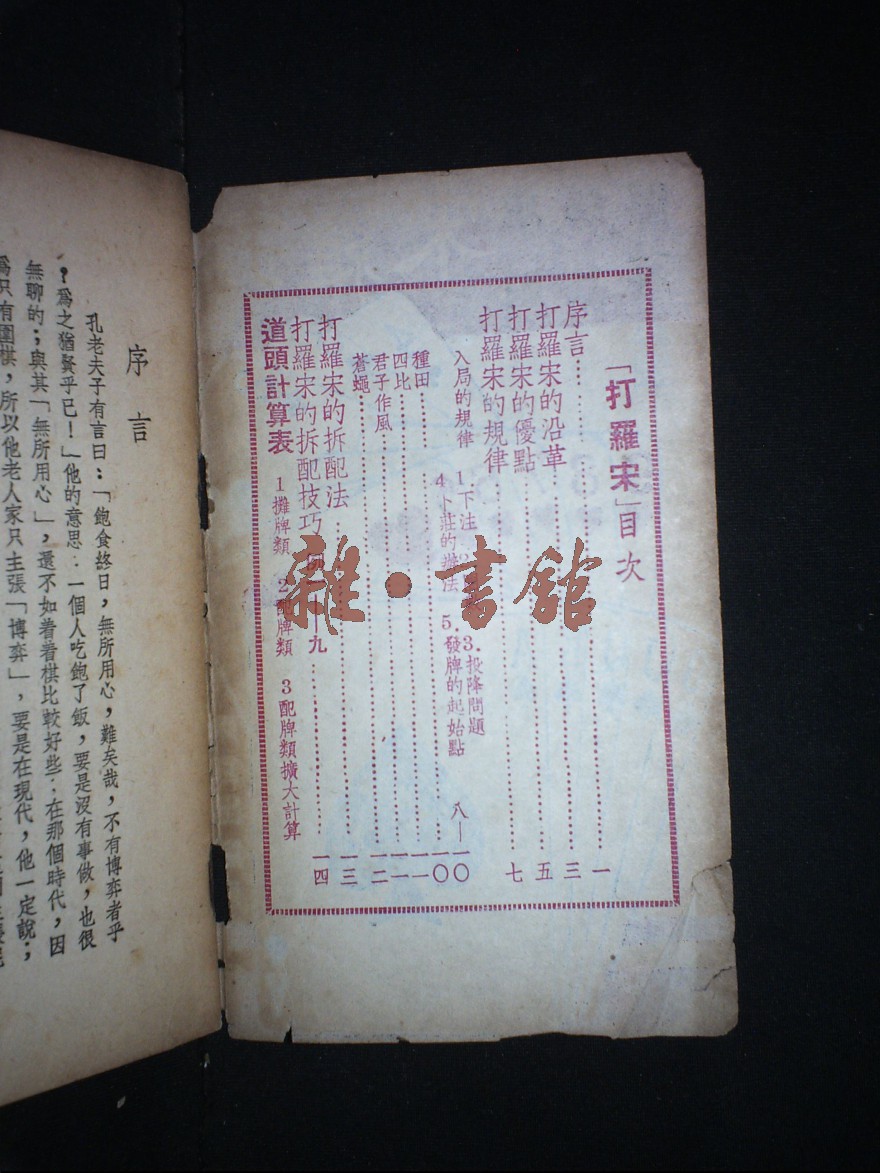 「打羅宋」目次
序言 一
打羅宋的沿革 三
打羅宋的優點 五
打羅宋的規律 七
入局的規律 1 下注 3. 投降問題
4 下莊的辦法 5. 發牌的起始點 八—一〇
種田 一〇
四比 一一
君子作風 一一
蒼蠅 一二
打羅宋的拆配法 一三
打羅宋的拆配技巧 例一——九 一四
道頭計算表 1 攤牌類 2 配牌類 3 配牌類擴大計算
雜·書館
序言
孔老夫子有言曰:「飽食終日,無所用心,難矣哉,不有博弈者乎
?爲之猶賢乎已!」他的意思:一個人吃飽了飯,要是沒有事做,也很
無聊的;與其「無所用心」,還不如着着棋比較好些:在那個時代,因
爲只有圍棋,所以他老人家只主張「博弈」,要是在現代,他一定說:;